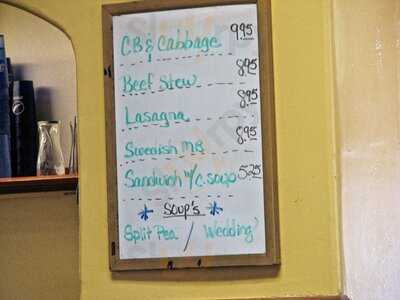 CB & Cabbage 9.95
Beef Stew 8.95
Lasagna 8.95
Swedish MB 8.95
Sandwich w/c.soup 5.25
* Soup's *
Split Pea / Wedding'